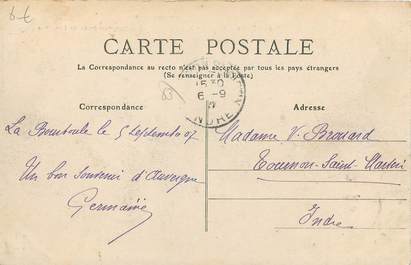 CARTE POSTALE
La Correspondance au recto n'est pas acceptée par tous les pays étrangers
(Se renseigner à la Poste)
15 30
6 -9
INDRE
Correspondance
Adresse
La Bourboule le 5 Septembre 07
Un bon souvenir d'Auvergne
Germaine
Madame V. Brouard
Tournon-Saint-Martin
Indre